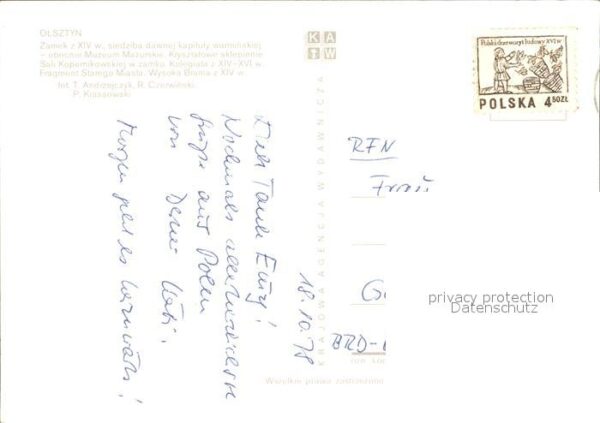 OLSZTYN
Zamek z XIV w., siedziba dawnej kapituły warmińskiej
– obecnie Muzeum Mazurskie. Kryształowe sklepienie
Sali Kopernikowskiej w zamku. Kolegiata z XIV–XVI w.
Fragment Starego Miasta. Wysoka Brama z XIV w.
fot. T. Andrzejczyk, R. Czerwiński,
P. Krassowski
KAW
KRAJOWA AGENCJA WYDAWNICZA
Polski drzeworyt ludowy XVI w
POLSKA 4 50ZŁ
18.10.78
Nochmals
aus Polen
von Deiner
Morgen geht es heimwärts!
RFN
Frau
G
privacy protection
Datenschutz
BRD-
Wszelkie prawa zastrzeżone